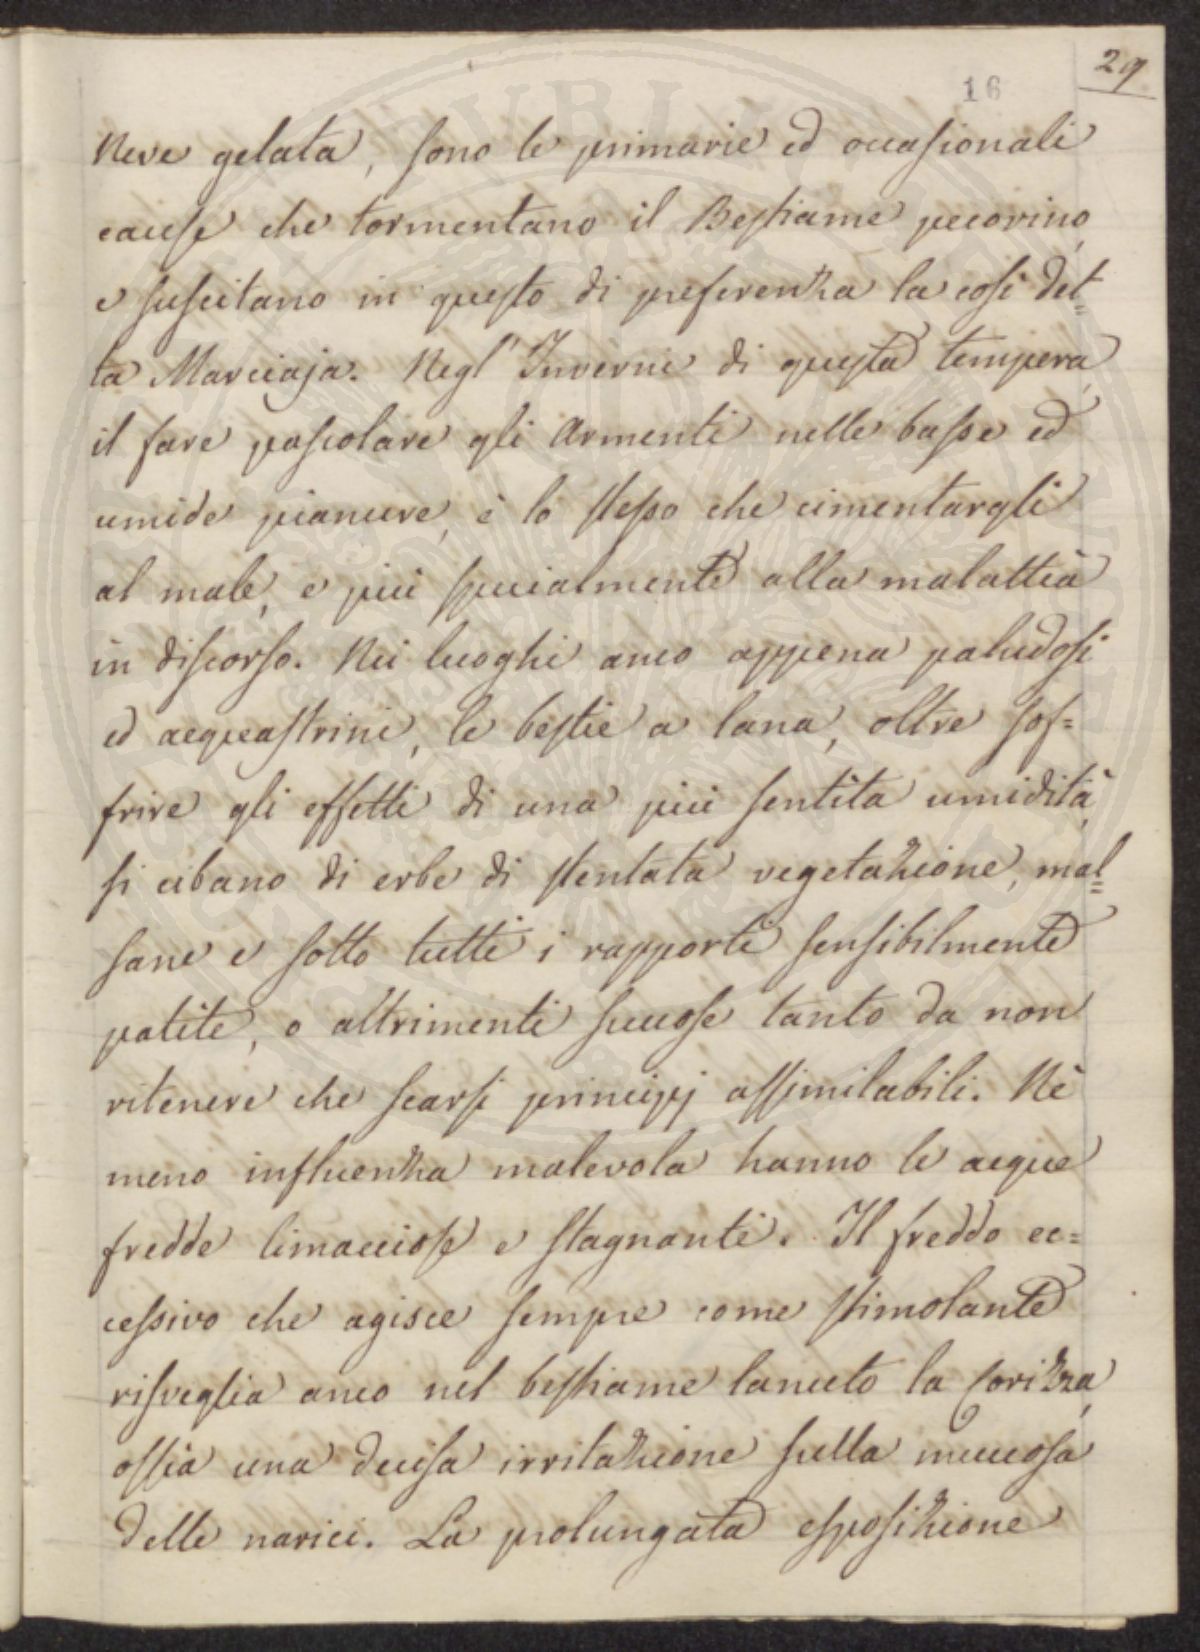 29
16
Neve gelata, sono le primarie ed occasionali
cause che tormentano il Bestiame pecorino,
e suscitano in questo di preferenza la così det=
ta Marciaja. Negl' Inverni di questa tempera,
il fare pascolare gli Armenti nelle basse ed
umide pianure, è lo stesso che cimentargli
al male, e più specialmente alla malattia
in discorso. Nei luoghi anco appena paludosi
ed acquastrini, le bestie a lana, oltre sof=
frire gli effetti di una più sentita umidità,
si cibano di erbe di stentata vegetazione, mal=
sane e sotto tutti i rapporti sensibilmente
patite, o altrimenti succose tanto da non
ritenere che scarsi principj assimilabili. Nè
meno influenza malevola hanno le acque
fredde limacciose e stagnanti. Il freddo ec=
cessivo che agisce sempre come stimolante
risveglia anco nel bestiame lanuto la Corizza,
ossia una decisa irritazione sulla muccosa
delle narici. La prolungata esposizione